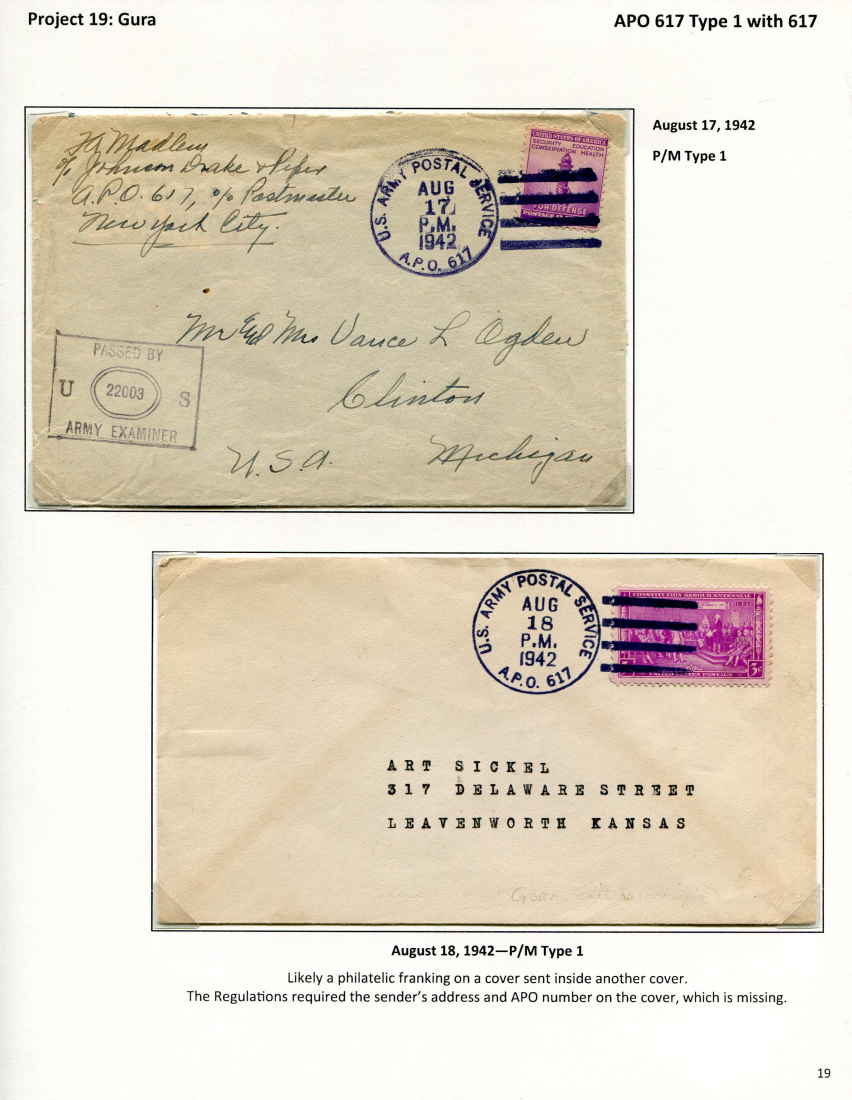 Project 19: Gura
APO 617 Type 1 with 617
August 17, 1942
P/M Type 1
Madlem
c/o Johnson Drake & Piper
A.P.O. 617, c/o Postmaster
New York City.
U.S. ARMY POSTAL SERVICE
AUG
17
P.M.
1942
A.P.O. 617
UNITED STATES OF AMERICA
SECURITY EDUCATION
CONSERVATION HEALTH
FOR DEFENSE
Mr and Mrs Vance L Ogden
Clinton
Michigan
U.S.A.
PASSED BY
U 22003 S
ARMY EXAMINER
U.S. ARMY POSTAL SERVICE
AUG
18
P.M.
1942
A.P.O. 617
CONSTITUTION SESQUICENTENNIAL
1937
3¢
UNITED STATES POSTAGE
ART SICKEL
317 DELAWARE STREET
LEAVENWORTH KANSAS
August 18, 1942—P/M Type 1
Likely a philatelic franking on a cover sent inside another cover.
The Regulations required the sender's address and APO number on the cover, which is missing.
19